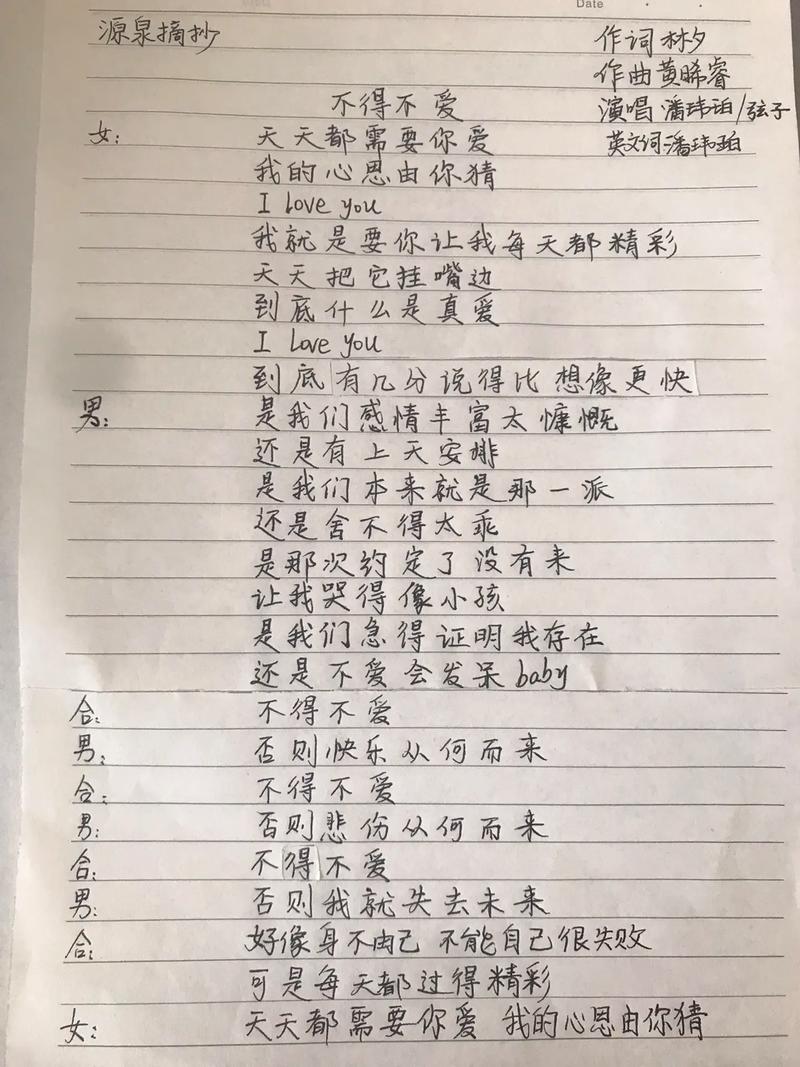 Date
源泉摘抄 作词 林夕
作曲黄晞睿
不得不爱 演唱 潘玮珀/弦子
女: 天天都需要你爱 英文词:潘玮珀
我的心思由你猜
I love you
我就是要你让我每天都精彩
天天把它挂嘴边
到底什么是真爱
I love you
到底有几分说得比想像更快
男: 是我们感情丰富太慷慨
还是有上天安排
是我们本来就是那一派
还是舍不得太乖
是那次约定了没有来
让我哭得像小孩
是我们急得证明我存在
还是不爱会发呆baby
合: 不得不爱
男: 否则快乐从何而来
合: 不得不爱
男: 否则悲伤从何而来
合: 不得不爱
男: 否则我就失去未来
合: 好像身不由己 不能自己很失败
可是每天都过得精彩
女: 天天都需要你爱 我的心思由你猜